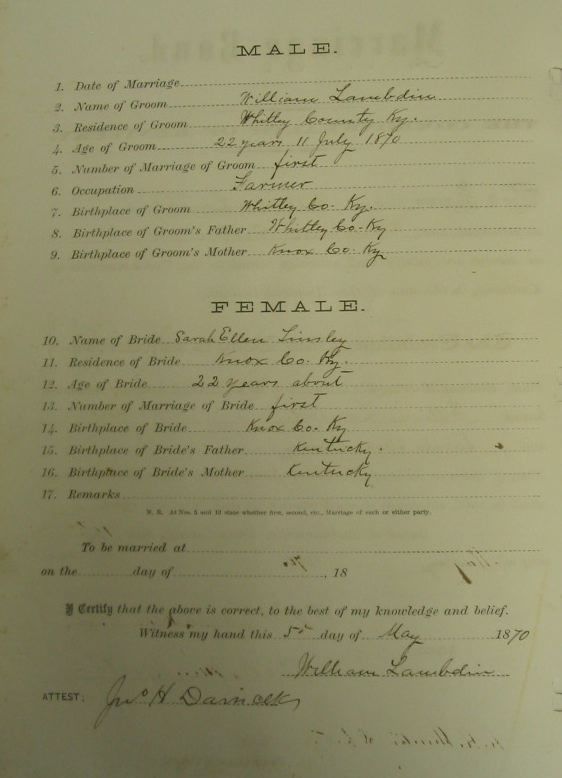 MALE.
1. Date of Marriage
2. Name of Groom William Lambdin
3. Residence of Groom Whitley County Ky.
4. Age of Groom 22 years 11 July 1870
5. Number of Marriage of Groom first
6. Occupation Farmer
7. Birthplace of Groom Whitley Co. Ky.
8. Birthplace of Groom's Father Whitley Co. Ky
9. Birthplace of Groom's Mother Knox Co. Ky
FEMALE.
10. Name of Bride Sarah Ellen Tinsley
11. Residence of Bride Knox Co. Ky.
12. Age of Bride 22 years about
13. Number of Marriage of Bride first
14. Birthplace of Bride Knox Co. Ky
15. Birthplace of Bride's Father Kentucky.
16. Birthplace of Bride's Mother Kentucky
17. Remarks
N. B. At Nos. 5 and 13 state whether first, second, etc., Marriage of each or either party.
To be married at
on the day of , 18
I Certify that the above is correct, to the best of my knowledge and belief.
Witness my hand this 5th day of May 1870
William Lambdin
ATTEST: Jno H